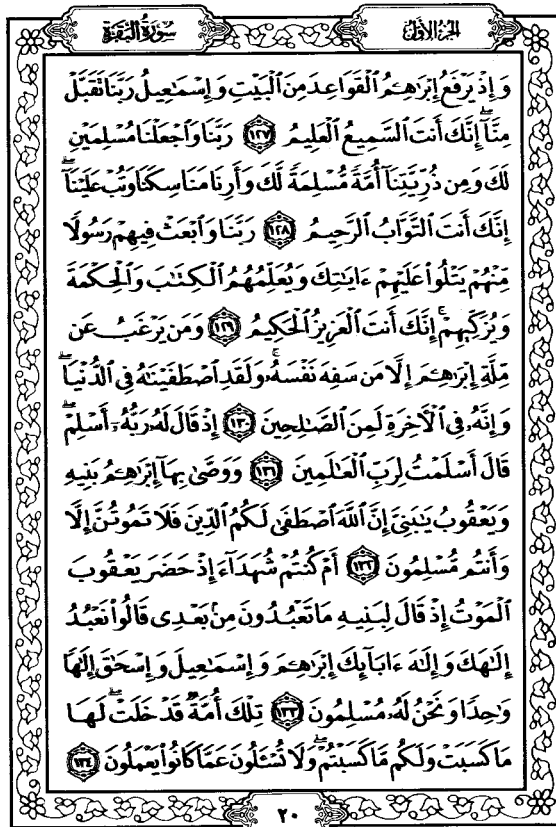 سُورَةُ البَقَرَةِ
الجُزءُ الأوَّلُ
وَإِذْ يَرْفَعُ إِبْرَٰهِـۧمُ ٱلْقَوَاعِدَ مِنَ ٱلْبَيْتِ وَإِسْمَـٰعِيلُ رَبَّنَا تَقَبَّلْ
مِنَّآ ۖ إِنَّكَ أَنتَ ٱلسَّمِيعُ ٱلْعَلِيمُ ١٢٧ رَبَّنَا وَٱجْعَلْنَا مُسْلِمَيْنِ
لَكَ وَمِن ذُرِّيَّتِنَآ أُمَّةً مُّسْلِمَةً لَّكَ وَأَرِنَا مَنَاسِكَنَا وَتُبْ عَلَيْنَآ ۖ
إِنَّكَ أَنتَ ٱلتَّوَّابُ ٱلرَّحِيمُ ١٢٨ رَبَّنَا وَٱبْعَثْ فِيهِمْ رَسُولًا
مِّنْهُمْ يَتْلُوا۟ عَلَيْهِمْ ءَايَـٰتِكَ وَيُعَلِّمُهُمُ ٱلْكِتَـٰبَ وَٱلْحِكْمَةَ
وَيُزَكِّيهِمْ ۚ إِنَّكَ أَنتَ ٱلْعَزِيزُ ٱلْحَكِيمُ ١٢٩ وَمَن يَرْغَبُ عَن
مِّلَّةِ إِبْرَٰهِـۧمَ إِلَّا مَن سَفِهَ نَفْسَهُۥ ۚ وَلَقَدِ ٱصْطَفَيْنَـٰهُ فِى ٱلدُّنْيَا ۖ
وَإِنَّهُۥ فِى ٱلْـَٔاخِرَةِ لَمِنَ ٱلصَّـٰلِحِينَ ١٣٠ إِذْ قَالَ لَهُۥ رَبُّهُۥٓ أَسْلِمْ ۖ
قَالَ أَسْلَمْتُ لِرَبِّ ٱلْعَـٰلَمِينَ ١٣١ وَوَصَّىٰ بِهَآ إِبْرَٰهِـۧمُ بَنِيهِ
وَيَعْقُوبُ يَـٰبَنِىَّ إِنَّ ٱللَّهَ ٱصْطَفَىٰ لَكُمُ ٱلدِّينَ فَلَا تَمُوتُنَّ إِلَّا
وَأَنتُم مُّسْلِمُونَ ١٣٢ أَمْ كُنتُمْ شُهَدَآءَ إِذْ حَضَرَ يَعْقُوبَ
ٱلْمَوْتُ إِذْ قَالَ لِبَنِيهِ مَا تَعْبُدُونَ مِنۢ بَعْدِى قَالُوا۟ نَعْبُدُ
إِلَـٰهَكَ وَإِلَـٰهَ ءَابَآئِكَ إِبْرَٰهِـۧمَ وَإِسْمَـٰعِيلَ وَإِسْحَـٰقَ إِلَـٰهًا
وَٰحِدًا وَنَحْنُ لَهُۥ مُسْلِمُونَ ١٣٣ تِلْكَ أُمَّةٌ قَدْ خَلَتْ ۖ لَهَا
مَا كَسَبَتْ وَلَكُم مَّا كَسَبْتُمْ ۖ وَلَا تُسْـَٔلُونَ عَمَّا كَانُوا۟ يَعْمَلُونَ ١٣٤
٢٠